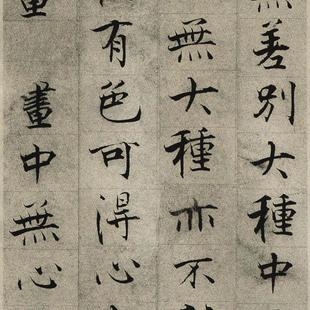 無差別大種中
無大種亦不
有色可得心
畫中無心